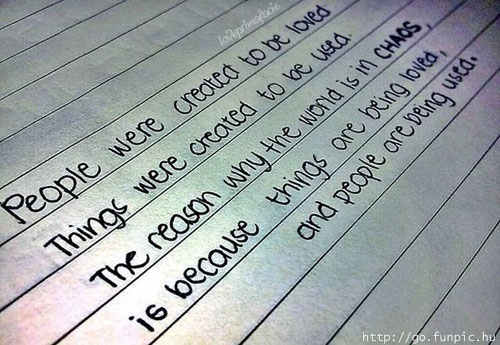 People were created to be loved
Things were created to be used.
The reason why the world is in CHAOS,
is because things are being loved,
and people are being used.
http://go.funpic.hu